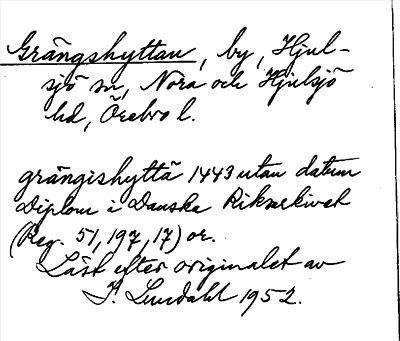 Grängshyttan, by, Hjul-
sjö sn, Nora och Hjulsjö
hd, Örebro l.
grängishyttä 1443 utan datum
Diplom i Danska Riksarkivet
(Reg. 51, 197, 17) or.
Läst efter originalet av
I. Lundahl 1952.